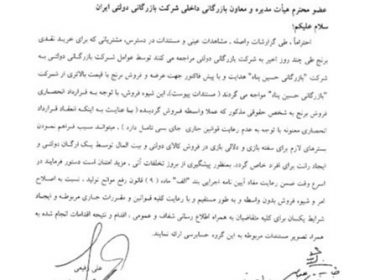 عضو محترم هیأت مدیره و معاون بازرگانی داخلی شرکت بازرگانی دولتی ایران
سلام علیکم؛
احتراماً، طی گزارشات واصله، مشاهدات عینی و مستندات در دسترس، مشتریانی که برای خرید نقدی
برنج طی چند روز اخیر به شرکت بازرگانی دولتی مراجعه می کنند توسط عوامل شرکت بازرگانی دولتی به
شرکت "بازرگانی حسین پناه" هدایت و با پیش فاکتور جهت عرضه و فروش برنج با قیمت بالاتری از شرکت
"بازرگانی حسین پناه" مواجه می گردند ( مستندات پیوست)، این شیوه فروش، با توجه به قرارداد انحصاری
فروش برنج به شخص حقوقی مذکور که عملا واسطه فروش گردیده ( بنا عنایت به اینکه انعقاد قرارداد
انحصاری معنونه با توجه به عدم رعایت قوانین جاری جای بسی تامل دارد ) ، میتواند سبب فراهم نمودن
بسترهای لازم برای سفته بازی و دلالی بازی در فروش کالای دولتی و بیت المال توسط یک ارگان دولتی و
ایجاد رانت برای افراد خاص گردد. بمنظور پیشگیری از بروز تخلفات آتی، مزید امتنان است دستور فرمایند در
اسرع وقت ضمن رعایت مفاد آیین نامه اجرایی بند "الف" ماده ( ۹ ) قانون رفع موانع تولید ، نسبت به اصلاح
امر و شیوه فروش بدون واسطه و به طور مستقیم و با رعایت کلیه قوانین و مقررات جاری مربوطه و ایجاد
شرایط یکسان برای کلیه متقاضیان به همراه اطلاع رسانی شفاف و عمومی ، اقدام و نتیجه اقدامات انجام شده به
همراه تصویر مستندات مربوطه به این گروه حسابرسی ارائه نمایند.